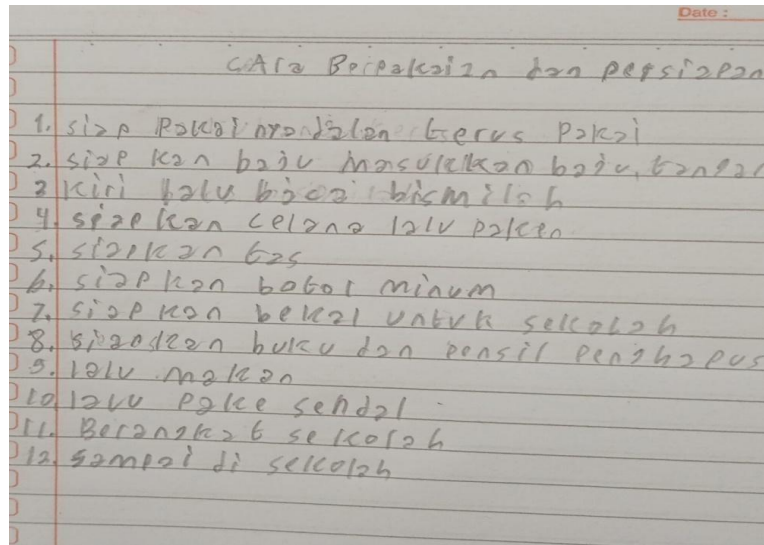 Date :
CARa Berpakaian dan persiapan
1. siap Pakai nya dalan terus pakai
2. siap kan baju masukkan baju, tangan
3 kiri lalu baca bismilah
4. siapkan celana lalu paken
5. siapkan tas
6. siapkan botol minum
7. siapkan bekal untuk sekolah
8. siapskan buku dan pensil penghapus
9. lalu makan
10. lalu pake sendal
11. Berangkat sekolah
12. sampai di sekolah